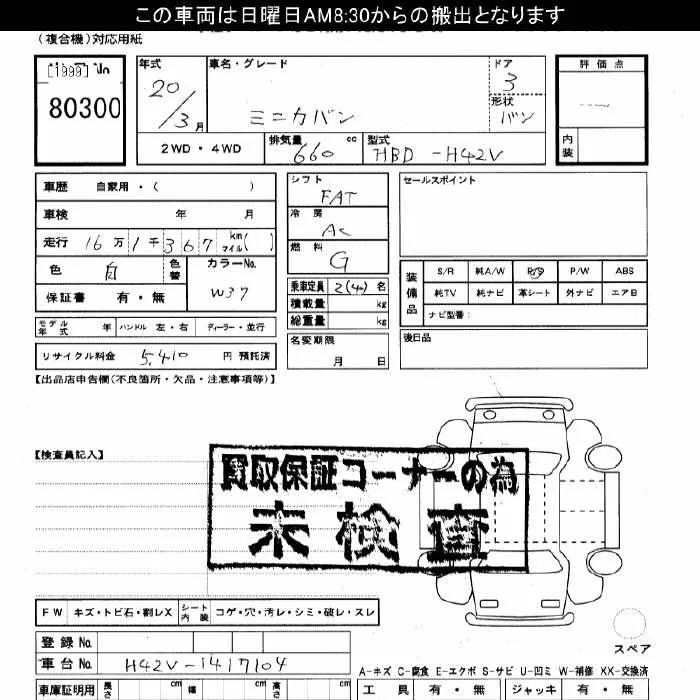 この車両は日曜日AM8:30からの搬出となります
(複合機)対応用紙
[1999]
80300
年式 20/3月
車名・グレード ミニカバン
ドア 3
形状 バン
評価点
内装
2WD・4WD
排気量 660 cc
型式 HBD-H42V
車歴 自家用・( )
車検 年 月
走行 16万1千367 km マイル( )
色 白 色替
カラーNo. W37
保証書 有・無
シフト FAT
冷房 AC
燃料 G
乗車定員 2(4)名
積載量 kg
総重量 kg
セールスポイント
装備品
S/R 純A/W P/S P/W ABS
純TV 純ナビ 革シート 外ナビ エアB
ナビ型番:
モデル年式 年 ハンドル 左・右 ディーラー・並行
名変期限 月 日
後日品
リサイクル料金 5,410 円 預託済
【出品店申告欄(不良箇所・欠品・注意事項等)】
【検査員記入】
買取保証コーナーの為
未検査
FW キズ・トビ石・割レX シート内装 コゲ・穴・汚レ・シミ・破レ・スレ
スペア
登録No.
車台No. H42V-1417104
A-キズ C-腐食 E-エクボ S-サビ U-凹ミ W-補修 XX-交換済
車庫証明用 長さ cm 幅 cm 高さ cm
工具 有・無 ジャッキ 有・無